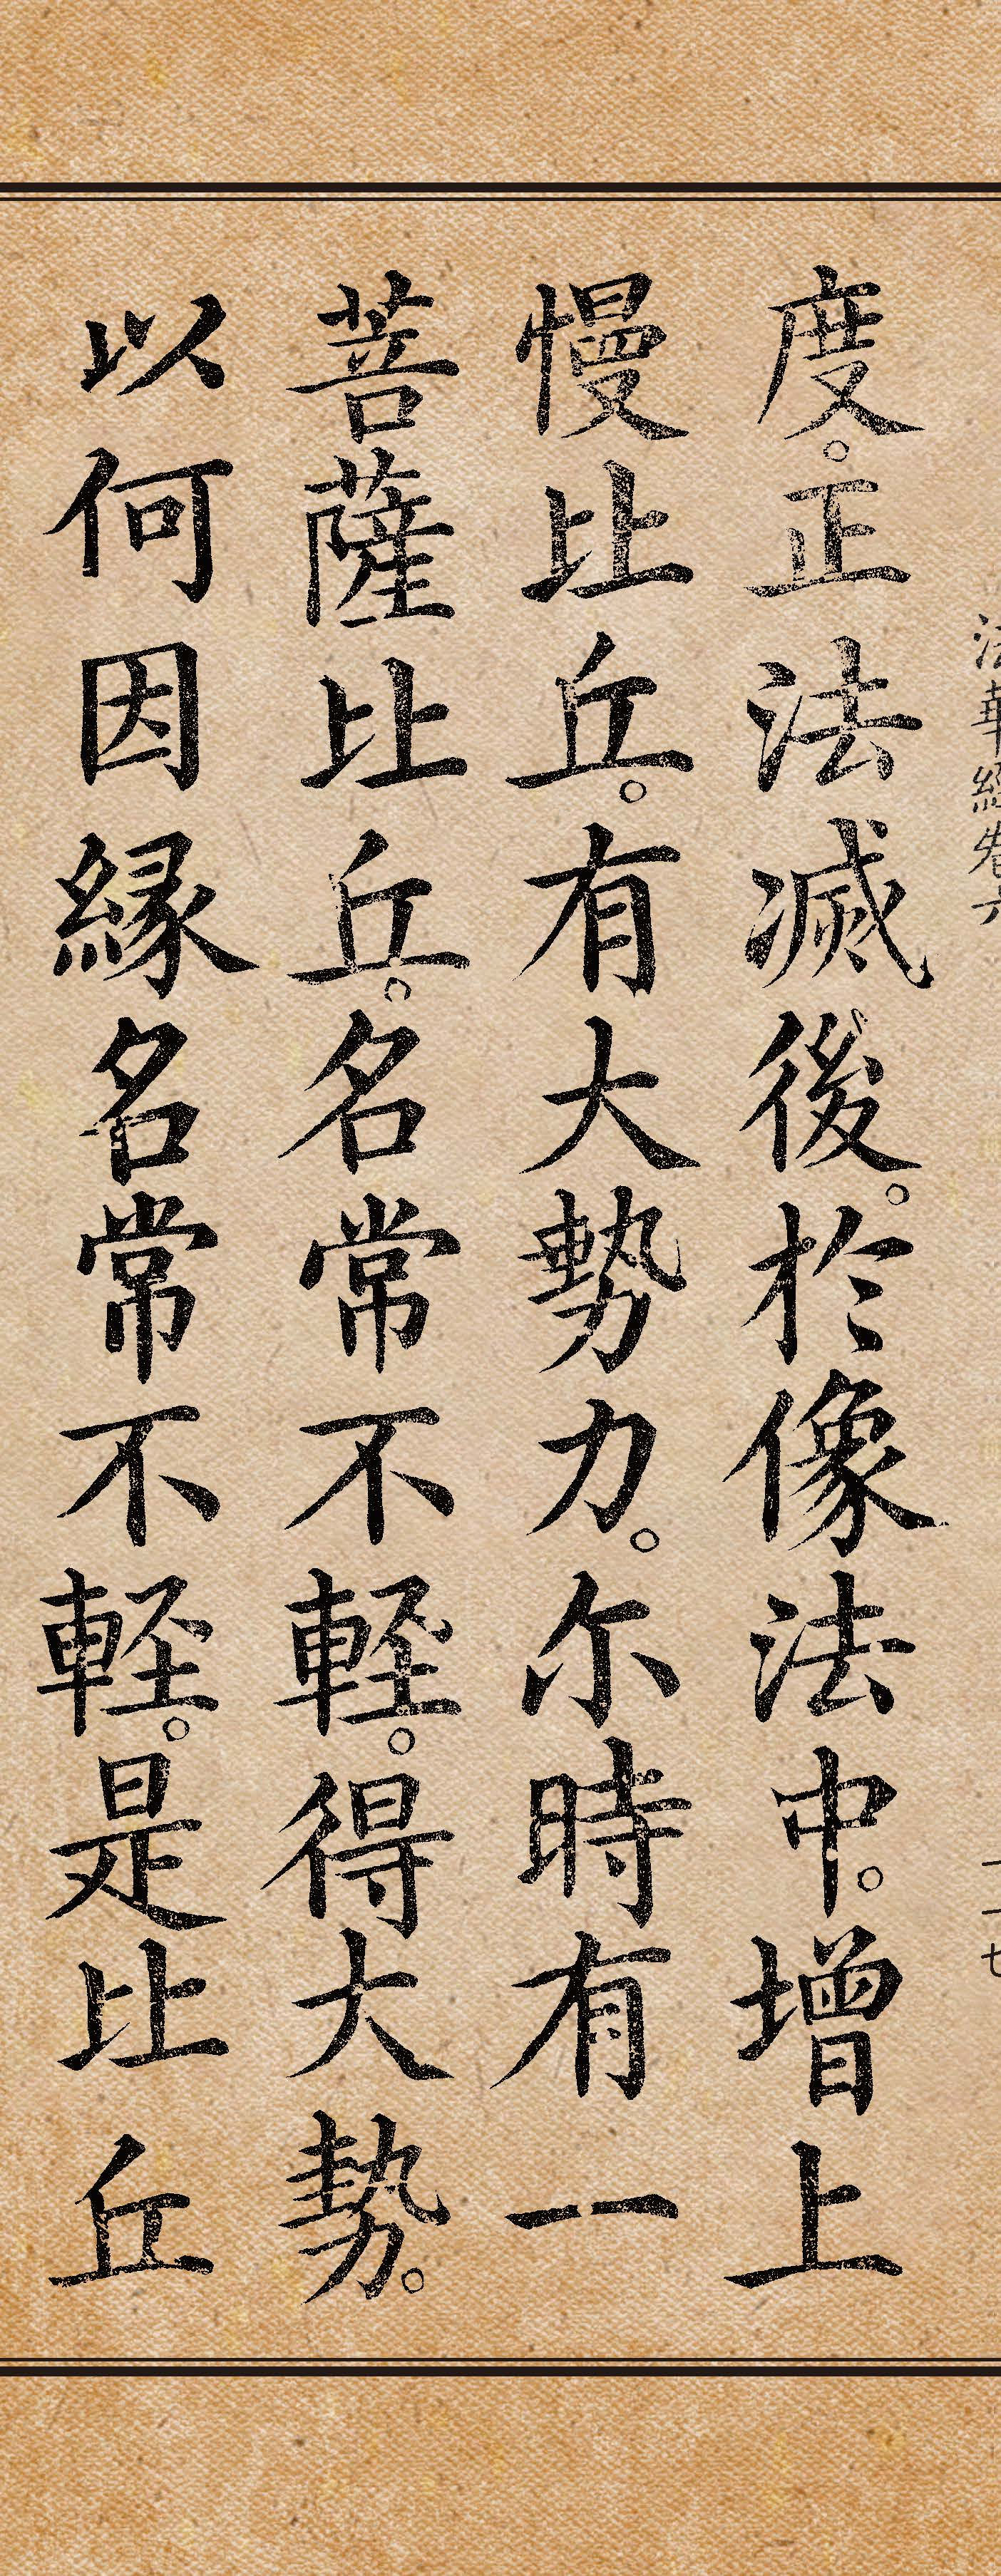 法華經卷六
度。正法滅後。於像法中。增上
慢比丘。有大勢力。尓時有一
菩薩比丘。名常不軽。得大勢。
以何因縁名常不軽。是比丘